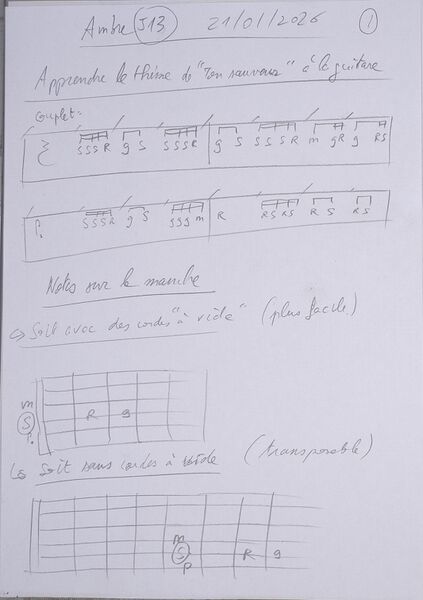 Ambre J13 21/01/2026 1
Apprendre le thème de "Ton sauveur" à la guitare
Couplet:
S S S R g S S S S R g S S S S R m g R g R S
S S S R g S S S S m R R S R S R S R S
Notes sur le manche
Soit avec des cordes "à vide" (plus facile)
m
S R g
P.
Soit sans cordes à vide (transposable)
m
S R g
P